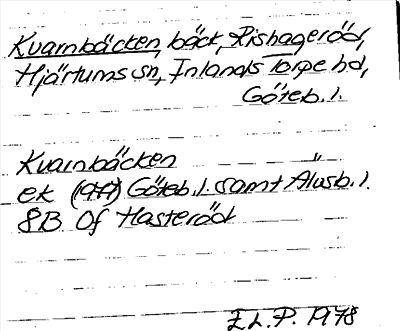 Kvarnbäcken, bäck, Rishageröd,
Hjärtums sn, Inlands Torpe hd,
Göteb. l.
Kvarnbäcken
ek (1977) Göteb. l. samt Älvsb. l.
8B 0f Hasteröd
E.L.P. 1978